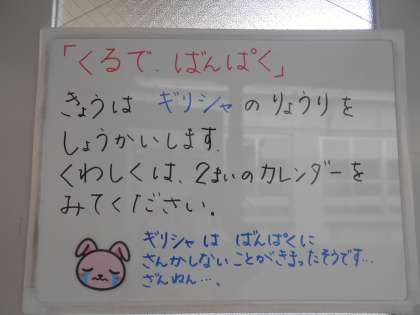 「くるで、ばんぱく」
きょうは ギリシャ の りょうり を
しょうかいします。
くわしくは、2まいの カレンダーを
みてください。
ギリシャは ばんぱくに
さんかしない ことが きまったそうです…
ざんねん…。